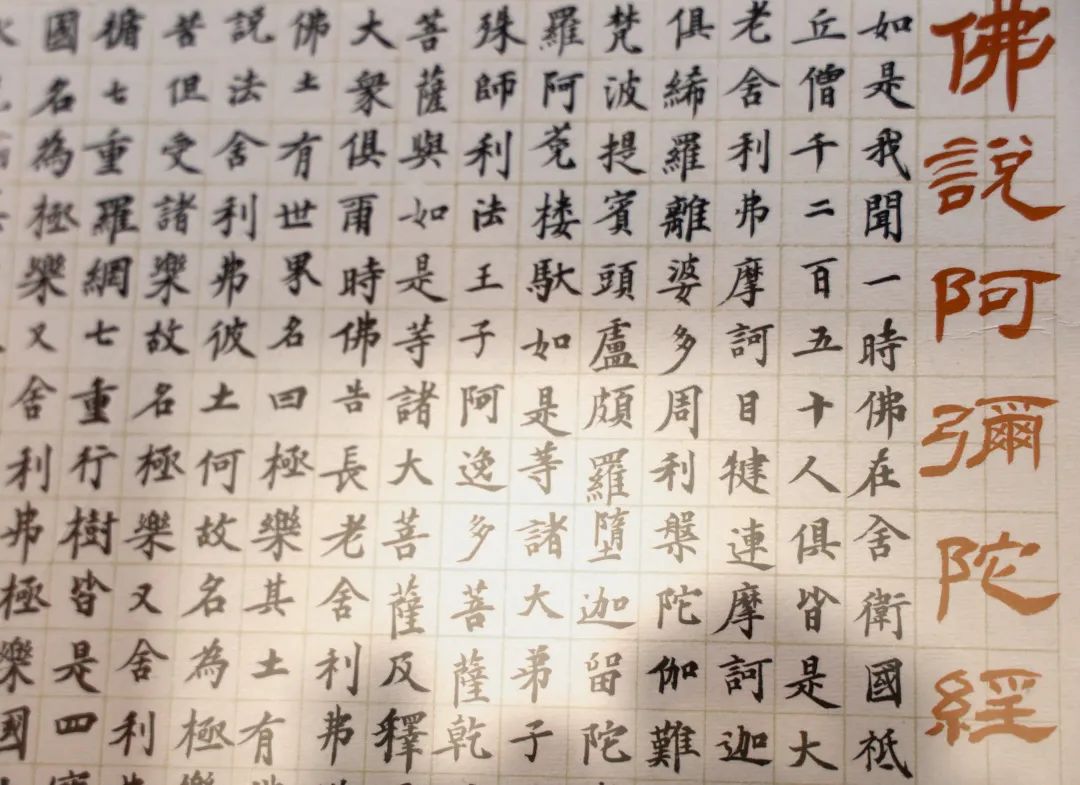 佛說阿彌陀經
如是我聞一時佛在舍衛國祇
丘僧千二百五十人俱皆是大
老舍利弗摩訶目犍連摩訶迦
俱絺羅離婆多周利槃陀伽難
梵波提賓頭盧頗羅墮迦留陀
羅阿莵樓馱如是等諸大弟子
殊師利法王子阿逸多菩薩乾
菩薩與如是等諸大菩薩及釋
大衆俱爾時佛告長老舍利弗
佛土有世界名曰極樂其土有
說法舍利弗彼土何故名為極
苦但受諸樂故名極樂又舍利
楯七重羅網七重行樹皆是四
國名為極樂又舍利弗極樂國